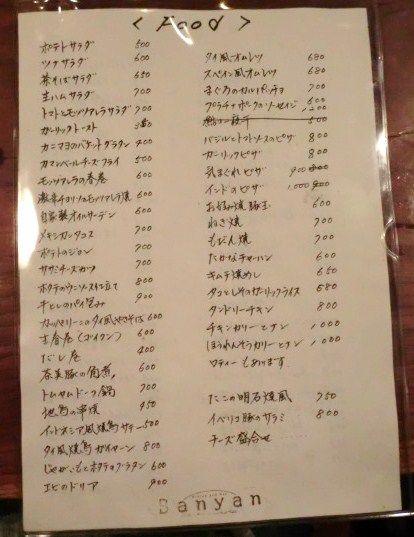 < Food >
ポテトサラダ 500
ツナサラダ 600
茶そばサラダ 650
生ハムサラダ 700
トマトとモッツアレラサラダ 700
ガーリックトースト
カニマヨのバケットグラタン 400
カマンベールチーズフライ 500
モッツアレラの春巻 600
激辛チョリソのモッツアレラ焼 600
自家製オイルサーデン 600
メキシカンタコス 700
ポテトのジョン 700
ササミチーズカツ 700
ホタテのウニソース仕立て 800
牛ヒレのパイ包み 900
カッペリーニのタイ風やきそば 600
生春巻(ゴイクン) 600
だし巻 400
奈美豚の角煮 600
トムヤムドーフ鍋 700
地鳥の串焼 450
インドネシア風焼鳥サテー 500
タイ風焼鳥ガイヤーン 800
じゃがいもとホタテのグラタン 600
エビのドリア 900
タイ風オムレツ 680
スペイン風オムレツ 680
まぐろのカルパッチョ 700
プラチナポークのソーセージ 600
1,200
バジルとトマトソースのピザ 800
ガーリックピザ 800
乳まぐれピザ 900
インドのピザ 1,000
お好み焼 豚玉 600
ねぎ焼 700
もだん焼 700
たかなチャーハン 600
キムチ焼めし 650
タコとしそのガーリックライス 680
タンドリーチキン 800
チキンカリーとナン 1,000
ほうれんそうカリーとナン 1,000
ロティーもあります
たこの明石焼風 750
イベリコ豚のサラミ 800
チーズ盛合せ
Banyan